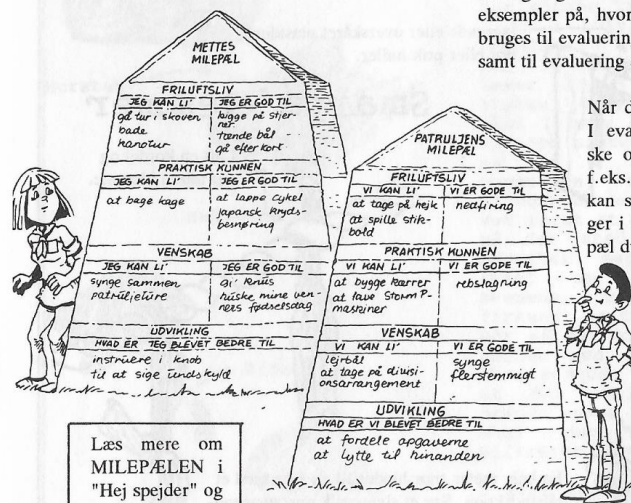 eksempler på, hvor
bruges til evaluerin
samt til evaluering
METTES
MILEPÆL
FRILUFTSLIV
JEG KAN LI'
JEG ER GOD TIL
gå tur i skoven
bade
kanotur
kigge på stjer-
ner
tænde bål
gå efter kort
PRAKTISK KUNNEN
JEG KAN LI'
JEG ER GOD TIL
at bage kage
at lappe cykel
japansk kryds-
besnøring
VENSKAB
JEG KAN LI'
JEG ER GOD TIL
synge sammen
patruljeture
gi' knus
huske mine ven-
ners fødselsdag
UDVIKLING
HVAD ER JEG BLEVET BEDRE TIL
instruere i knob
til at sige undskyld
PATRULJENS
MILEPÆL
FRILUFTSLIV
VI KAN LI'
VI ER GODE TIL
at tage på hejk
at spille stik-
bold
nedfiring
PRAKTISK KUNNEN
VI KAN LI'
VI ER GODE TIL
at bygge kærrer
at lave Storm P-
maskiner
rebslagning
VENSKAB
VI KAN LI'
VI ER GODE TIL
lejrbål
at tage på divisi-
onsarrangement
synge
flerstemmigt
UDVIKLING
HVAD ER VI BLEVET BEDRE TIL
at fordele opgaverne
at lytte til hinanden
Når d
I eva
ske o
f.eks.
kan s
ger i
pæl d
Læs mere om
MILEPÆLEN i
"Hej spejder" og